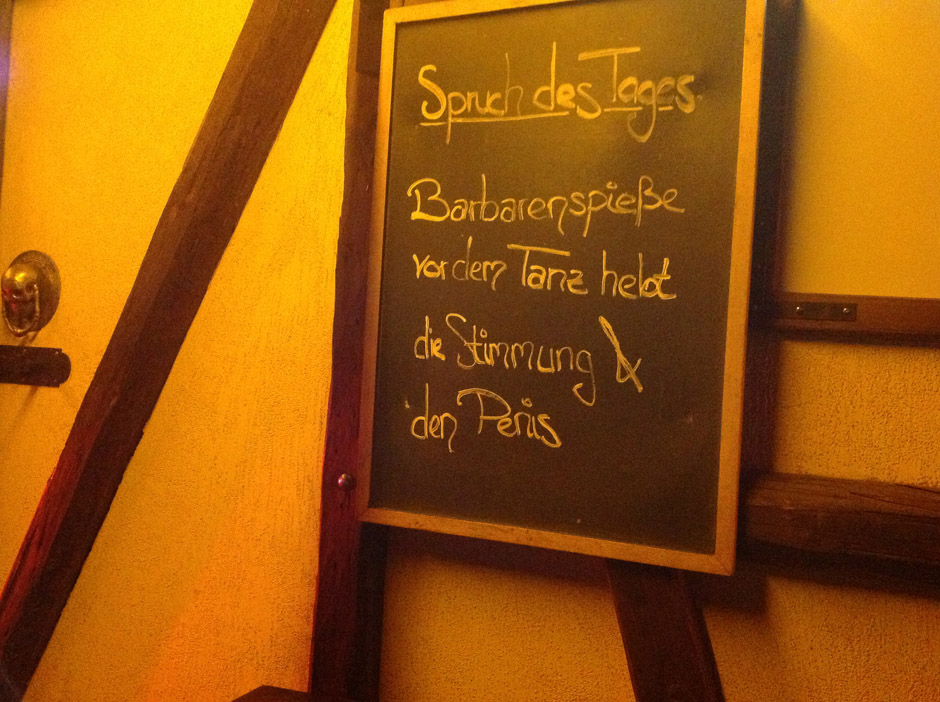 Spruch des Tages
Barbarenspieße
vor dem Tanz hebt
die Stimmung &
den Penis